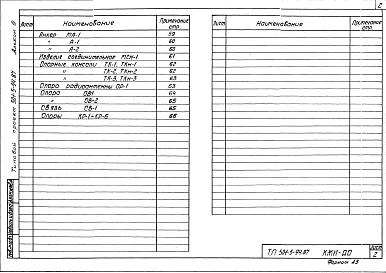 2
Альбом III
Типовой проект 501-5-94.87
Лист Наименование Примечание стр.
Анкер МА-1 59
" А-1 60
" А-2 60
Изделие соединительное МСН-1 61
Опорные консоли ТК-1, ТКн-1 62
" ТК-2, ТКн-2 62
" ТК-3, ТКн-3 63
Опора радиоантенны ОР-1 63
Опора ОВ1 64
" ОБ-2 65
Связь СВ-1 65
Опоры КР-1÷КР-6 66
Лист Наименование Примечание стр.
ТП 501-5-94.87 КЖИ-ДО Лист 2
Формат А3